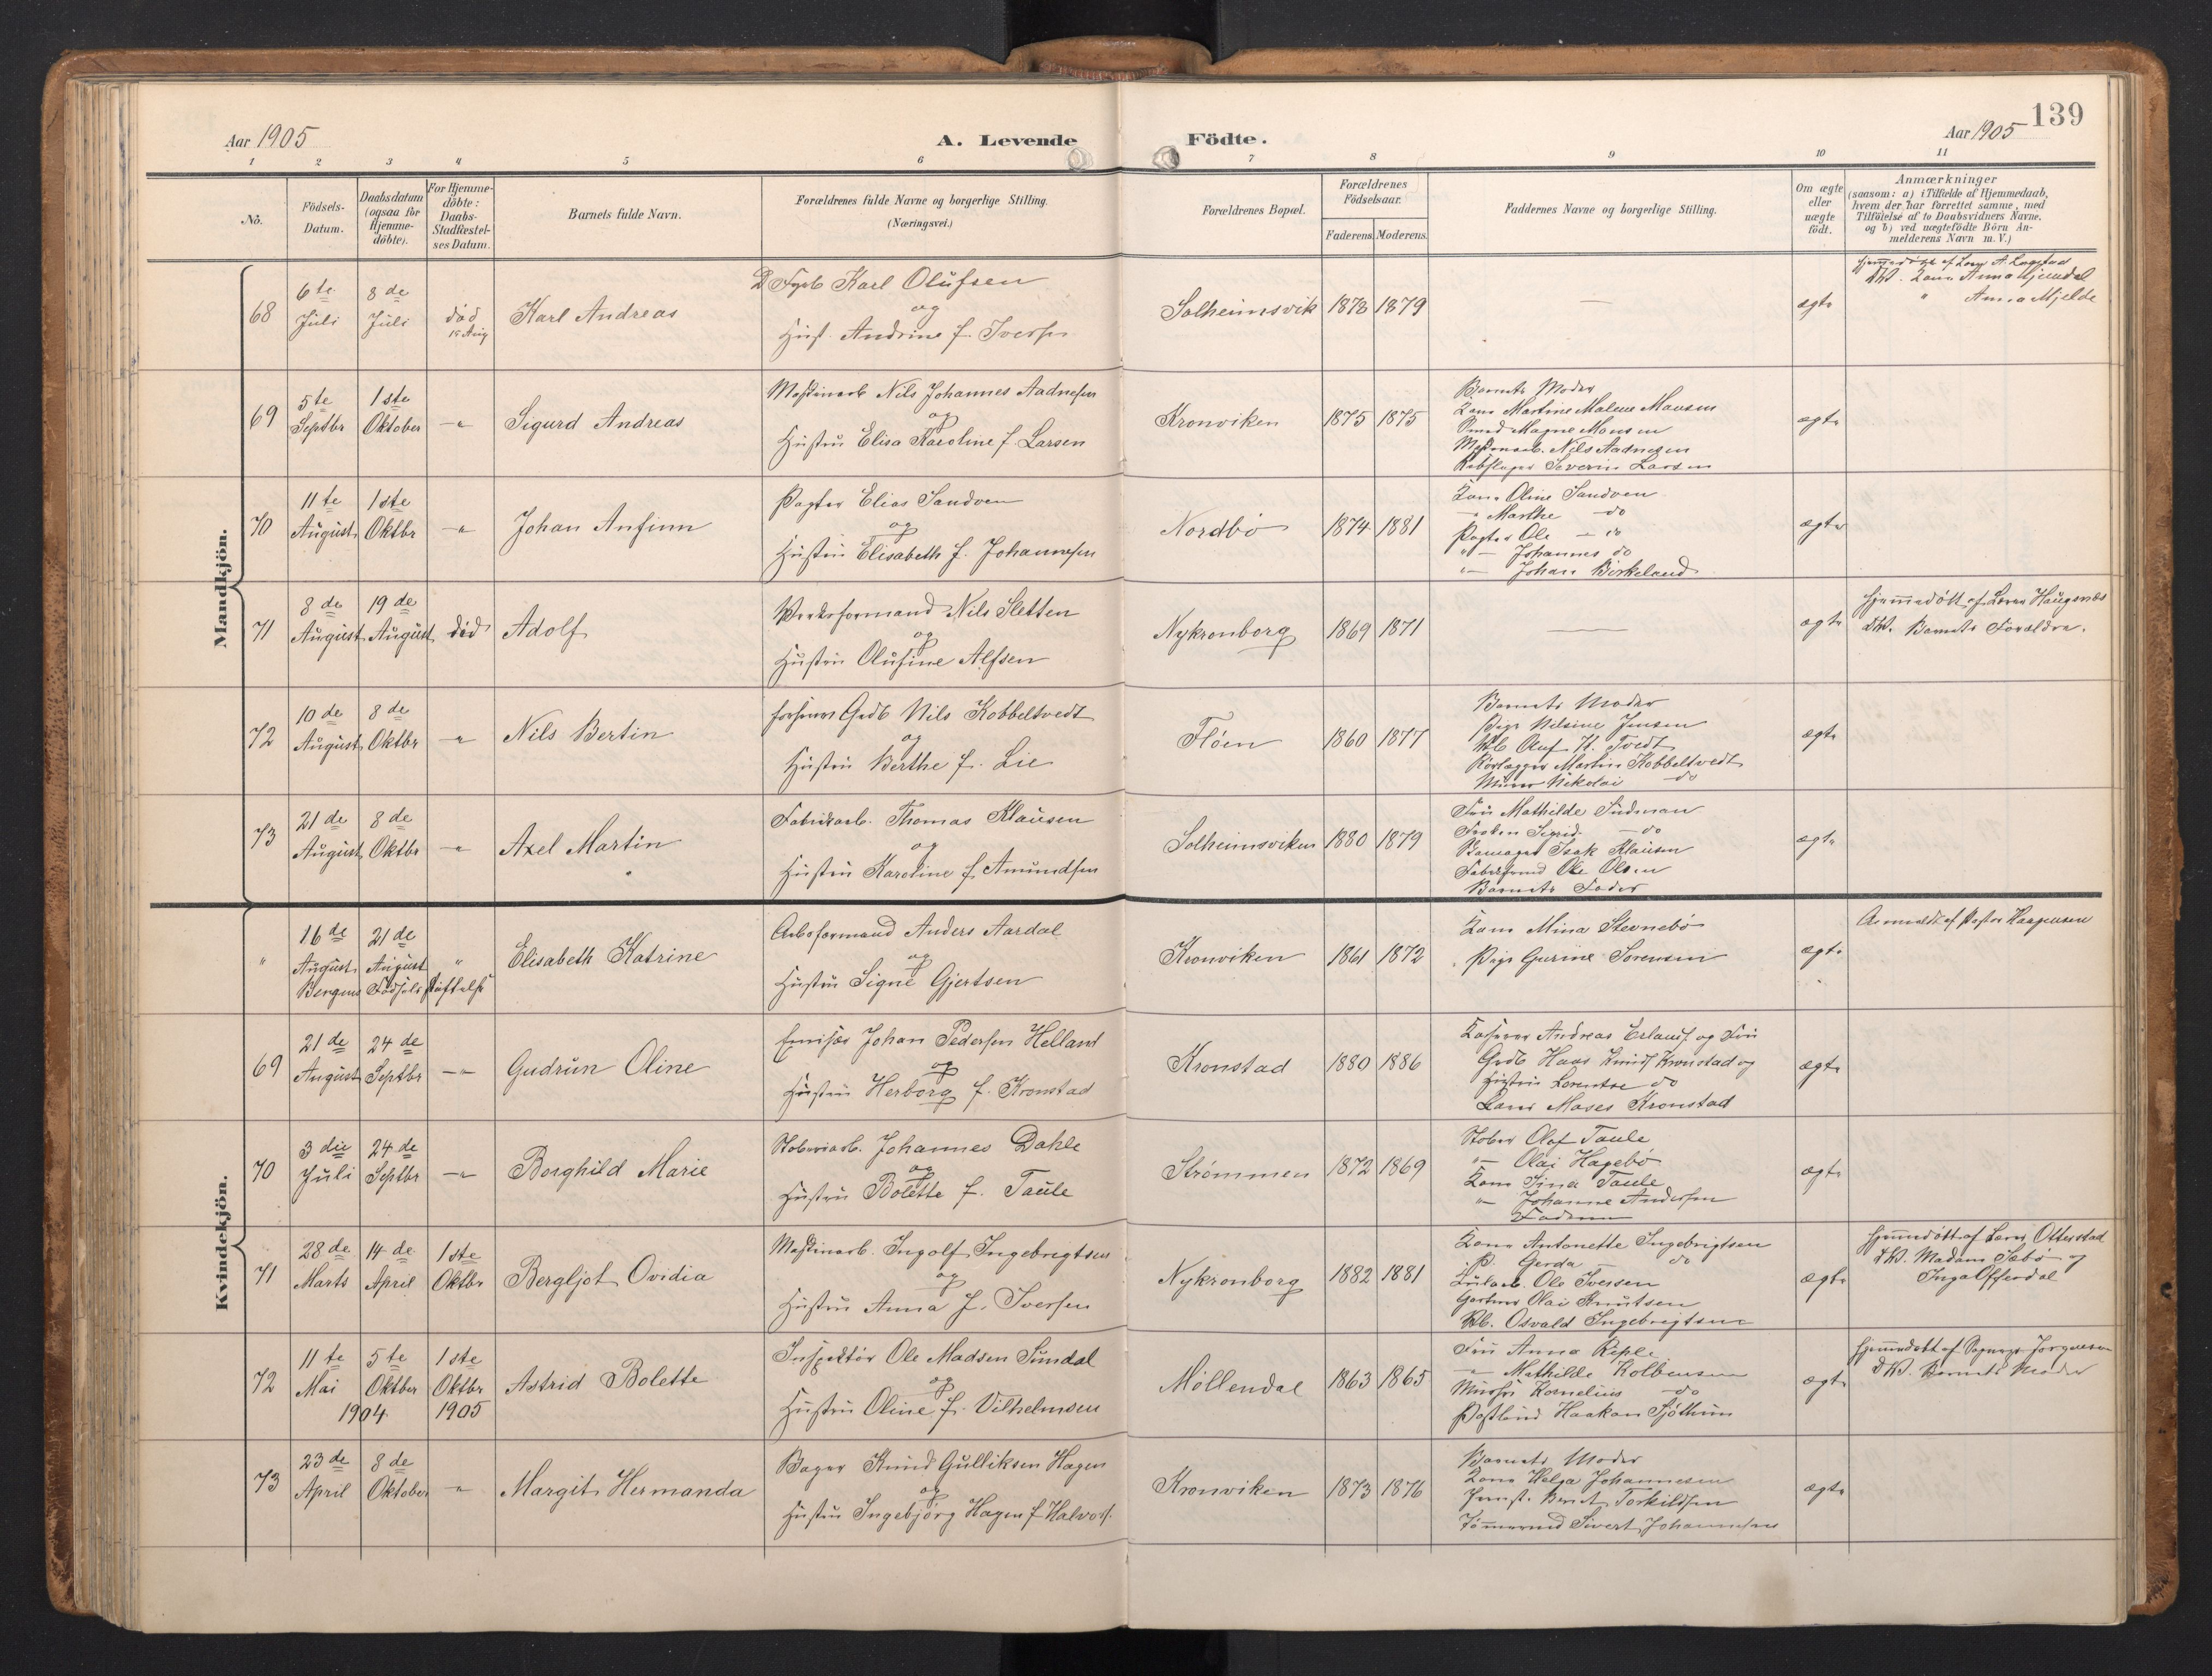 Aar 1905
A. Levende
Födte.
Aar 1905
139
1 2 3 4 5 6 7 8 9 10 11
Nö.
Födsels-Datum.
Daabsdatum (ogsaa for Hjemme-döbte).
For Hjemme-döbte: Daabs-Stadfæstel-ses Datum.
Barnets fulde Navn.
Forældrenes fulde Navne og borgerlige Stilling.
(Næringsvei.)
Forældrenes Bopæl.
Forældrenes Födselsaar.
Faderens. Moderens.
Faddernes Navne og borgerlige Stilling.
Om ægte eller uægte födt.
Anmærkninger
(saasom: a) i Tilfælde af Hjemmedaab, hvem der har forrettet samme, med Tilföielse af to Daabsvidners Navne, og b) ved uægtefödte Börn An-melderens Navn m. V.)
Mandkjön.
68
6te Juli
8de Juli
död 15 Aug
Karl Andreas
Karl Olufsen
og
Hust. Andrine f. Iversen
Solheimsvik
1878 1879
—
ægte
Hjemmedöbt af Lærer A.
DV. Kone Anna
" Anna Mjelde
69
5te Septbr
1ste Oktober
—"
Sigurd Andreas
Maskinarb Nils Johannes Aadnesen
og
Hustru Elisa Karoline f. Larsen
Kronviken
1875 1875
Barnets Moder
Kone Martine Malene Monsen
Smed Magne Monsen
Maskinarb. Nils Aadnesen
Rebslager Severin Larsen
ægte
70
11te August
1ste Oktbr
—"
Johan Anfinn
Pagter Elias Sandven
og
Hustru Elisabeth f. Johannesen
Nordbö
1874 1881
Kone Oline Sandven
" Marthe — do
Pagter Ole — do
"— Johannes do
"— Johan Birkeland
ægte
71
8de August
19de August
död
Adolf
Verksformand Nils Sletten
og
Hustru Olufine Alfsen
Nykronborg
1869 1871
—
ægte
Hjemmedöbt af Lærer Haugsnæs
DV. Barnets Forældre.
72
10de August
8de Oktbr
—"
Nils Bertin
forhenv Grdb Nils Kobbeltvedt
og
Hustru Berthe f. Lie
Flöen
1860 1877
Barnets Moder
Pige Nilsine Jensen
Oluf H. Tvedt
Rörlægger Martin Kobbeltvedt
Murer Nikolai do
ægte
73
21de August
8de Oktbr
—"
Axel Martin
Fabrikarb. Thomas Klausen
og
Hustru Karoline f. Amundsen
Solheimsviken
1880 1879
Fru Mathilde Sudman
Fröken Sigrid — do
Isak Klausen
Ole Olsen
Barnets Fader
ægte
Kvindekjön.
"
16de August
21de August
"
Bergens Födselsstiftelse
Elisabeth Katrine
Arbsformand Anders Aardal
og
Hustru Signe Gjertsen
Kronviken
1861 1872
Kone Mina Stevnebö
Pige Gurine Sorensen
ægte
Anmeldt af Pastor
69
21de August
24de Septbr
—"
Gudrun Oline
Emisær Johan Pedersen Helland
og
Hustru Herborg f. Kronstad
Kronstad
1880 1886
Kasserer Andreas Erlands og Fru
Grdb Hans Knuds Kronstad og
Hustru Lorentse do
Moses Kronstad
ægte
70
3die Juli
24de Septbr
—"
Borghild Marie
Stoberiarb. Johannes Dahle
og
Hustru Bolette f. Taule
Strömmen
1872 1869
Stober Olaf Taule
"— Olai Hagebö
Kone Sina Taule
"— Johanne Andersen
Faderen
ægte
71
28de Marts
14de April
1ste Oktbr
Bergljot Ovidia
Maskinarb. Ingolf Ingebrigtsen
og
Hustru Anna f. Iversen
Nykronborg
1882 1881
Kone Antonette Ingebrigtsen
P. Gerda — do
Ole Iversen
Gartner Olai Knutsen
Osvald Ingebrigtsen
ægte
Hjemmedöbt af Lærer Otterstad
DV. Madam Sæbö og
Inga Offerdal
72
11te Mai
5te Oktber
1904
1ste Oktbr 1905
Astrid Bolette
Inspektör Ole Madsen Sundal
og
Hustru Oline f. Vilhelmsen
Möllendal
1863 1865
Fru Anna
—" Mathilde Kolbensen
Kornelius do
Haakon Sjöthun
ægte
Hjemmedöbt af Jörgensen
DV. Barnets Moder
73
23de April
8de Oktober
"
Margit Hermanda
Bager Knud Gulliksen Hagen
og
Hustru Ingebjörg Hagen f Halvors.
Kronviken
1873 1876
Barnets Moder
Kone Helga Johannesen
Berit Torkildsen
Tömmermd Sivert Johannesen
ægte